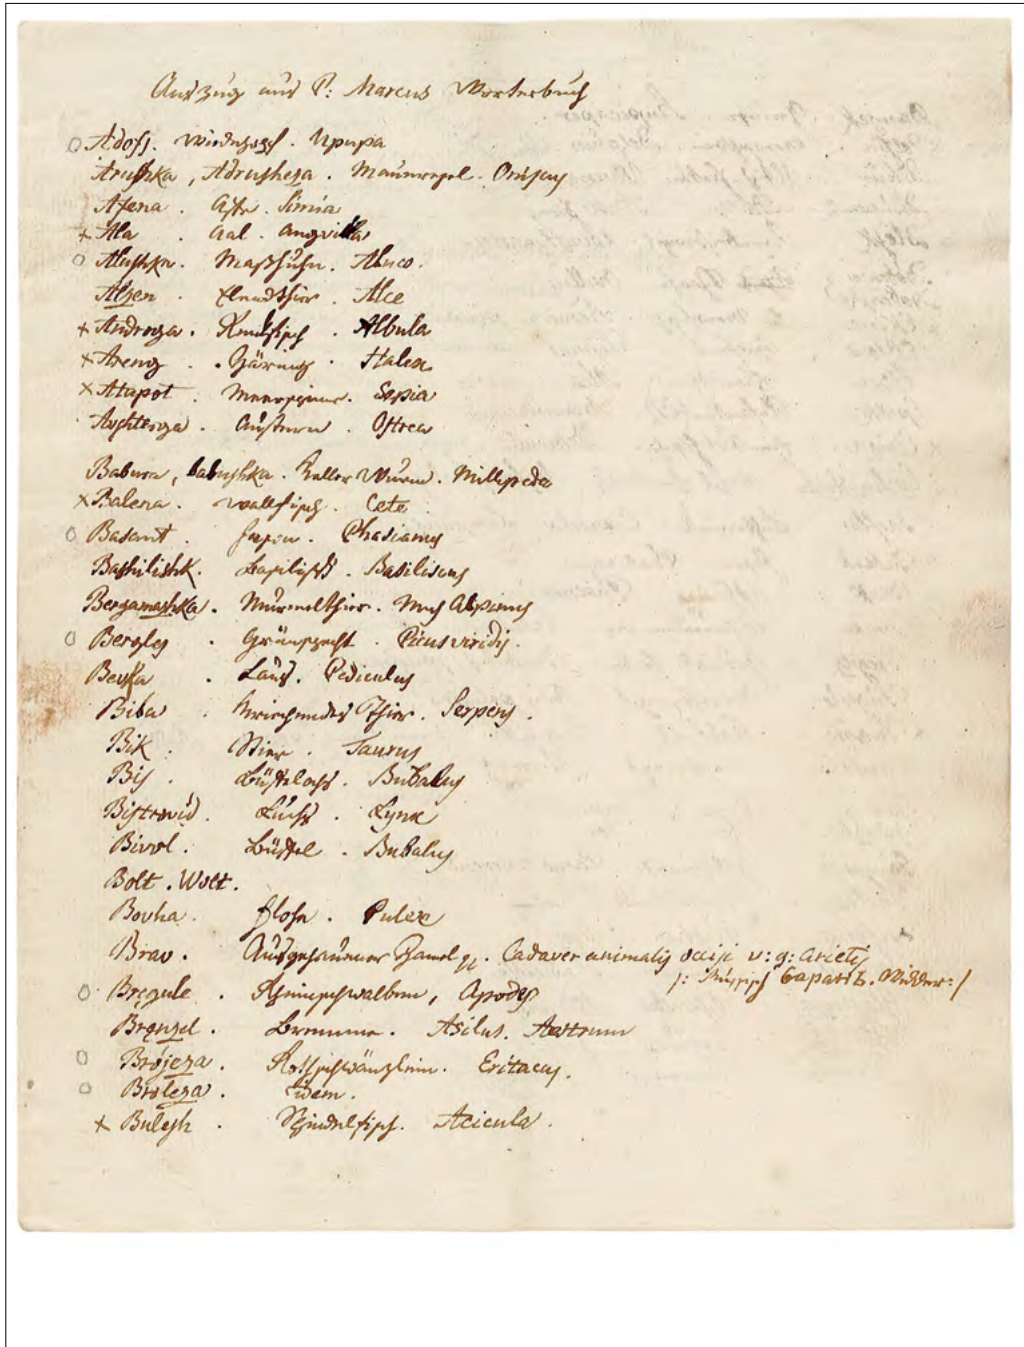 Auszug aus P: Marcus Worterbuch
Adofs. Wiedehopf. Upupa
Arushka, Adrusheza. Maurwespel. Oniscus
Afena. Affe. Simia
+ Ala. Aal. Angvilla
Alushka. Maßhuhn. Aluco.
Alzen. Elendthier. Alce
+ Androga. Albula
+ Areng. Häring. Halex
× Atapot. Meerspinne. Sepia
Aushterga. Austern. Ostrea
Babura, babushka. Keller Wurm. Millepeda
× Balena. Wallfisch. Cete
Basant. Fasan. Phasianus
Bashilishk. Basilisk. Basiliscus
Bergamashka. Murmelthier. Mus Alpinus
Bergles. Grünspecht. Picus viridis.
Laus. Pediculus
Biba. kriechendes Thier. Serpens.
Bik. Stier. Taurus
Bis. Büffelochs. Bubalus
Bistrovid. Luchs. Lynx
Bivol. Büffel. Bubalus
Bolt. Wolt.
Bovha. Flohe. Pulex
Brav. Ausgehauener Hamel. Cadaver animalis occisi v: g: arietis
/: Russisch баранъ. Widder :/
Bregule. Rheinschwalben, Apodes
Brenzel. Bremme. Asilus. Aestrum
Brojeza. Rothschwänzlein. Eritacus.
Broleza. Idem.
+ Bulesh. Spindelfisch. Acicula.